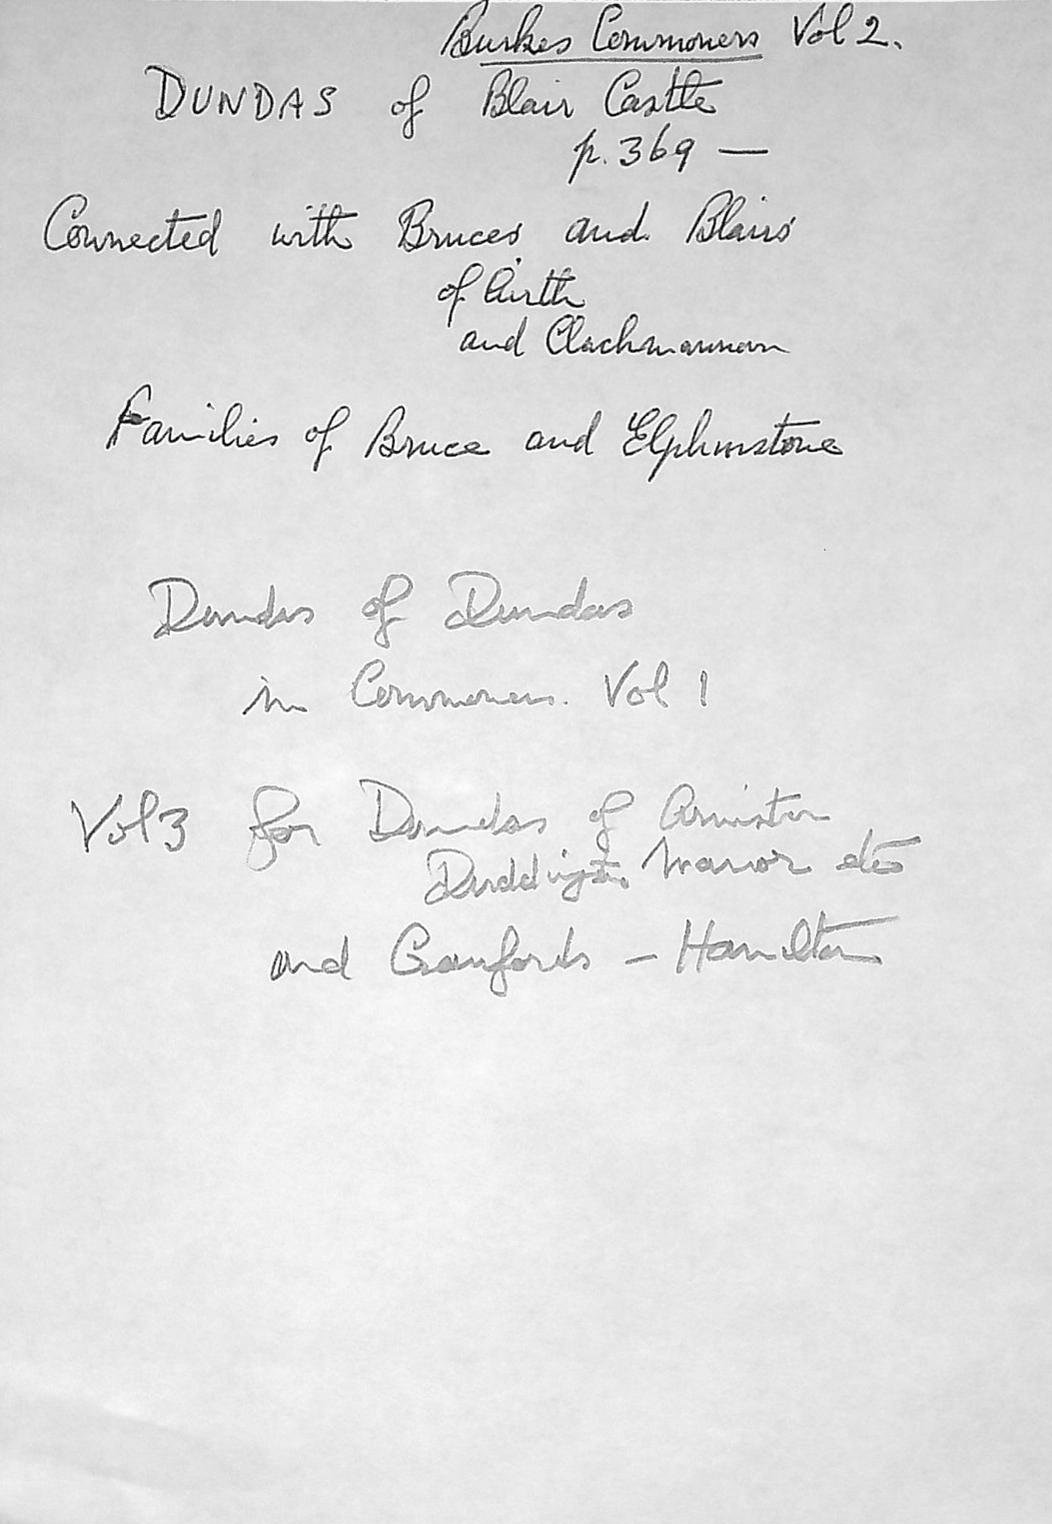 Burkes Commoners Vol 2.
DUNDAS of Blair Castle
p. 369 —
Connected with Bruces and Blairs
of Airth
and Clackmannan
Families of Bruce and Elphinstone
Dundas of Dundas
in Commoners. Vol 1
Vol 3 for Dundas of Arniston
Duddingston, Manor etc
and Craufords – Hamilton